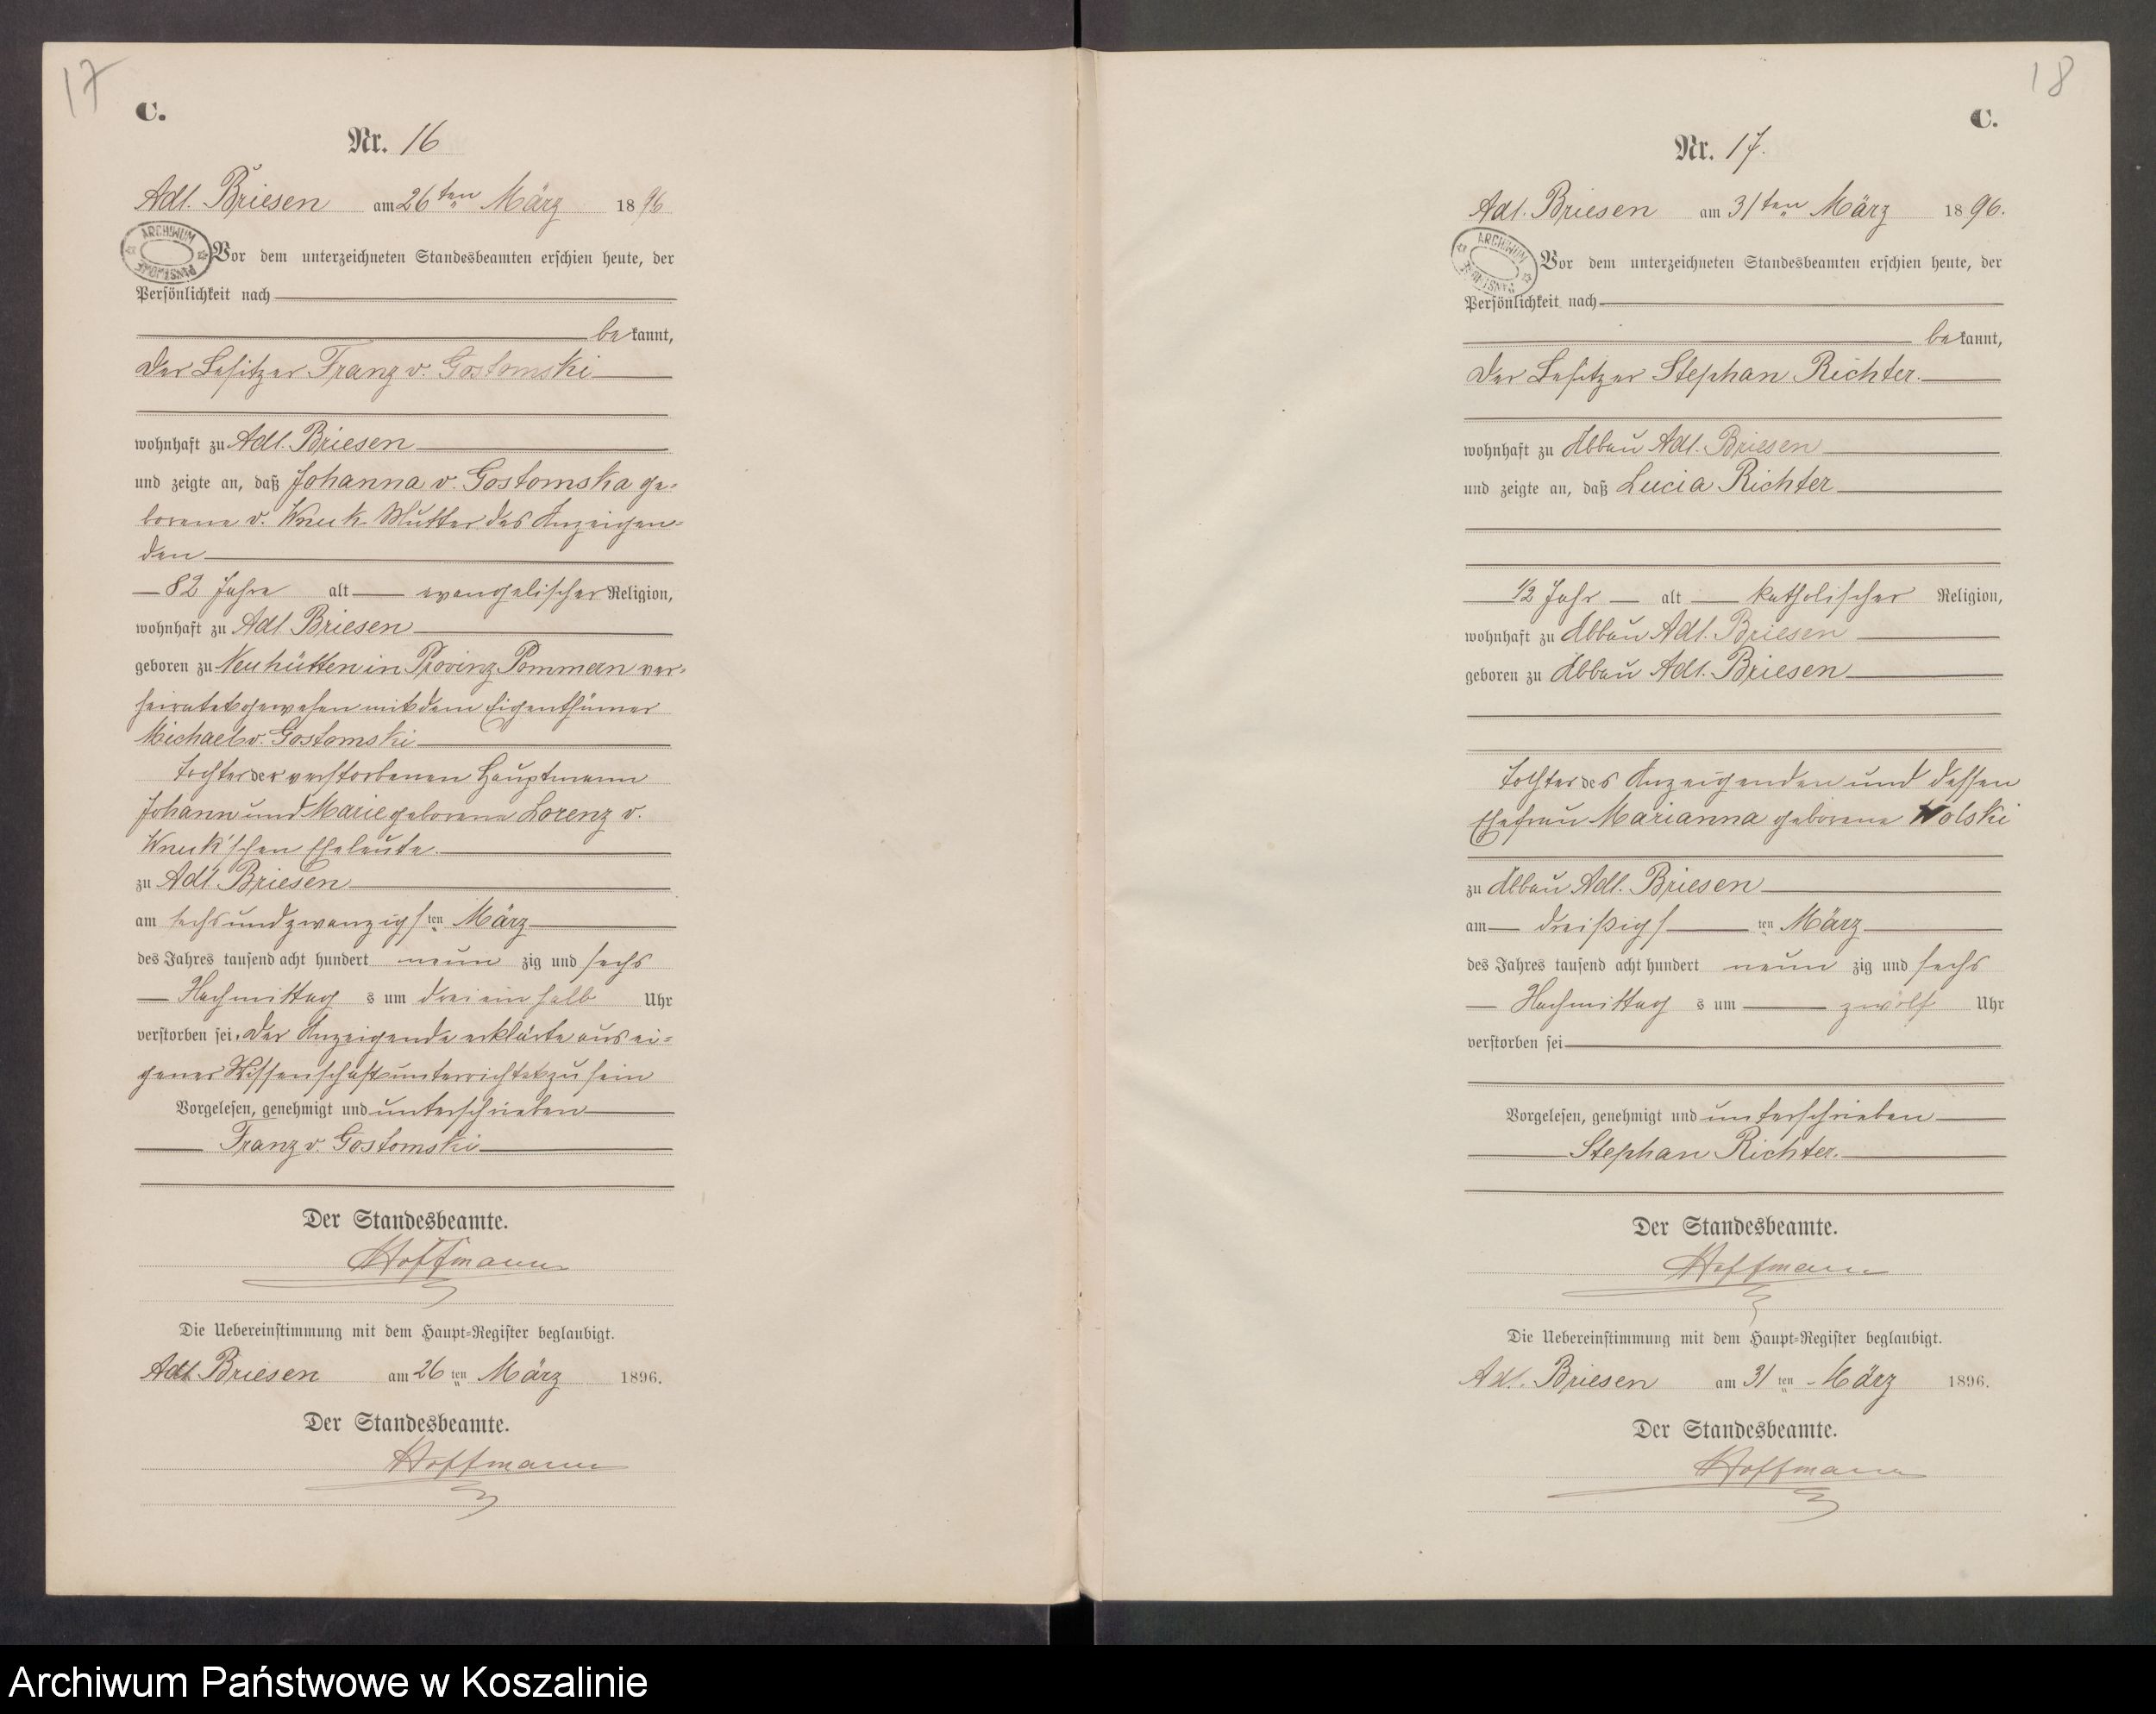 17
C.
Nr. 16
Adl. Briesen am 26ten März 1896
ARCHIWUM PAŃSTWOWE
Vor dem unterzeichneten Standesbeamten erschien heute, der
Persönlichkeit nach
bekannt,
der Besitzer Franz v. Gostomski
wohnhaft zu Adl. Briesen
und zeigte an, daß Johanna v. Gostomska ge-
borene v. Wnuk Mutter des Anzeigen-
den
82 Jahre alt evangelischer Religion,
wohnhaft zu Adl. Briesen
geboren zu Neuhütten in Provinz Pommern ver-
heiratet gewesen mit dem Eigenthümer
Michael v. Gostomski
Tochter der verstorbenen Hauptmann
Johann und Marie geborene Lorenz v.
Wnuk'schen Eheleute.
zu Adl. Briesen
am sechsundzwanzigsten März
des Jahres tausend acht hundert neunzig und sechs
Nachmittags um drei ein halb Uhr
verstorben sei. Der Anzeigende erklärte aus ei-
gener Wissenschaft unterrichtet zu sein
Vorgelesen, genehmigt und unterschrieben
Franz v. Gostomski
Der Standesbeamte.
Hoffmann
Die Uebereinstimmung mit dem Haupt-Register beglaubigt.
Adl. Briesen am 26ten März 1896.
Der Standesbeamte.
Hoffmann
18
C.
Nr. 17.
Adl. Briesen am 31ten März 1896.
ARCHIWUM PAŃSTWOWE
Vor dem unterzeichneten Standesbeamten erschien heute, der
Persönlichkeit nach
bekannt,
der Besitzer Stephan Richter.
wohnhaft zu Abbau Adl. Briesen
und zeigte an, daß Lucia Richter
1/2 Jahr alt katholischer Religion,
wohnhaft zu Abbau Adl. Briesen
geboren zu Abbau Adl. Briesen
Tochter des Anzeigenden und dessen
Ehefrau Marianna geborene Wolski
zu Abbau Adl. Briesen
am dreißigsten März
des Jahres tausend acht hundert neunzig und sechs
Nachmittags um zwölf Uhr
verstorben sei
Vorgelesen, genehmigt und unterschrieben
Stephan Richter.
Der Standesbeamte.
Hoffmann
Die Uebereinstimmung mit dem Haupt-Register beglaubigt.
Adl. Briesen am 31ten März 1896.
Der Standesbeamte.
Hoffmann
Archiwum Państwowe w Koszalinie